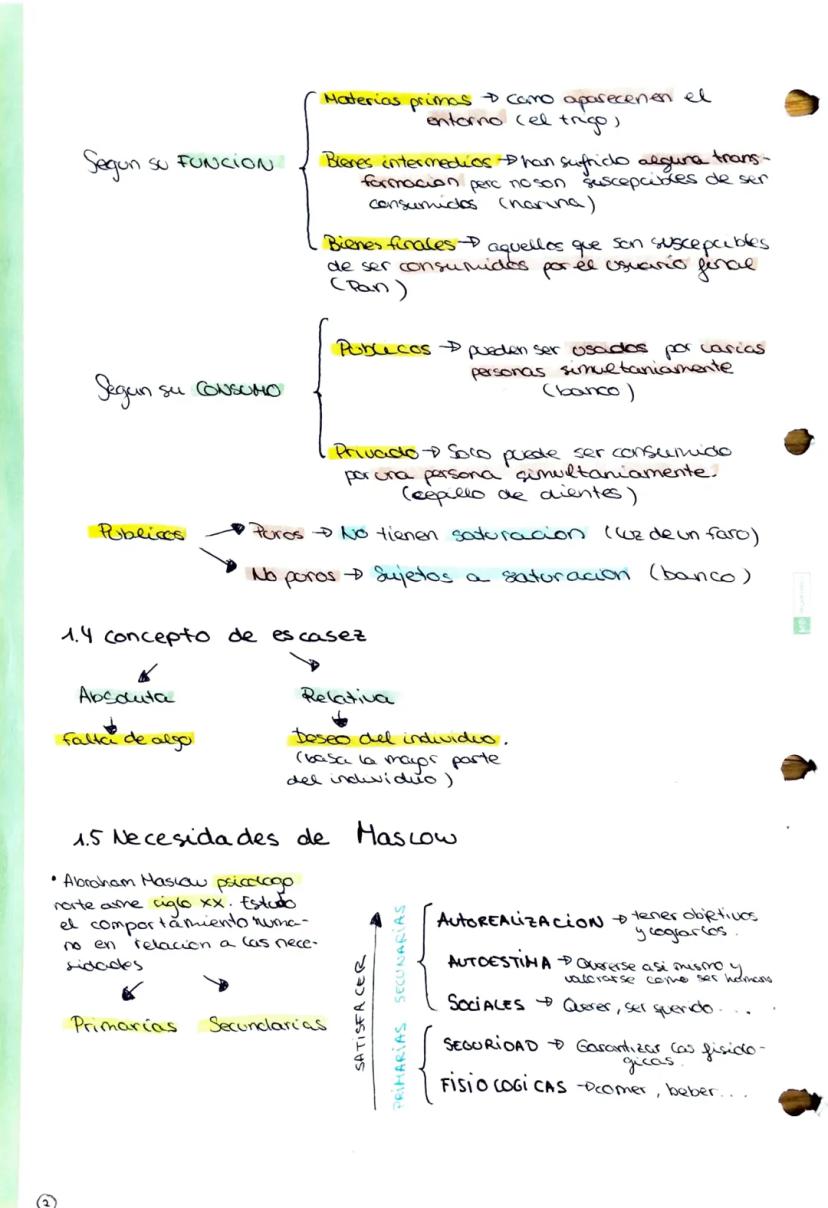 Materias primas → como aparecen en el
entorno (el trigo)
Segun su FUNCION
Bienes intermedios → han sufrido alguna trans-
formacion pero no son suscepcibles de ser
consumidos (harina)
Bienes finales → aquellos que son suscepcibles
de ser consumidos por el usuario final
(Pan)
Publicos → pueden ser usados por varias
personas simultaniamente
(banco)
Segun su CONSUMO
Privado → Solo puede ser consumido
por una persona simultaniamente.
(cepillo de dientes)
Publicos → Puros → No tienen saturacion (luz de un faro)
No puros → Sujetos a saturacion (banco)
1.4 concepto de escasez
Absoluta Relativa
falta de algo Deseo del individuo.
(basa la mayor parte
del individuo)
1.5 Necesidades de Maslow
• Abraham Maslow psicologo
norte ame siglo XX. Estudo
el comportamiento huma-
no en relacion a las nece-
sidades
Primarias Secundarias
SATISFACER
SECUNARIAS
AUTOREALIZACION → tener objetivos
y lograrlos.
AUTOESTIMA → Quererse asi mismo y
valorarse como ser humano
SOCIALES → Querer, ser querido....
PRIMARIAS
SEGURIDAD → Garantizar las fisiolo-
gicas.
FISIOLOGICAS → comer, beber...
2